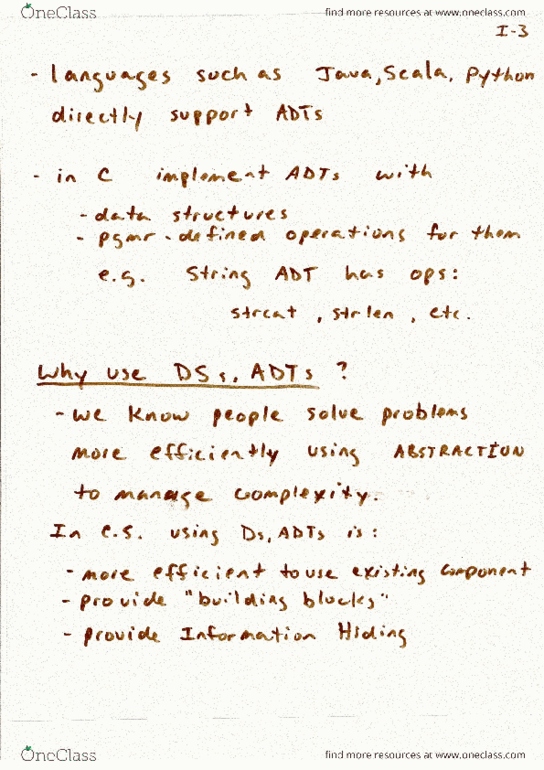 OneClass
find more resources at www.oneclass.com
I-3
- languages such as Java, Scala, Python
directly support ADTs
- in C implement ADTs with
- data structures
- pgmr-defined operations for them
e.g. String ADT has ops:
strcat, strlen, etc.
Why use DSs, ADTs ?
- we know people solve problems
more efficiently using ABSTRACTION
to manage complexity.
In C.S. using Ds, ADTs is:
- more efficient to use existing component
- provide "building blocks"
- provide Information Hiding
OneClass
find more resources at www.oneclass.com